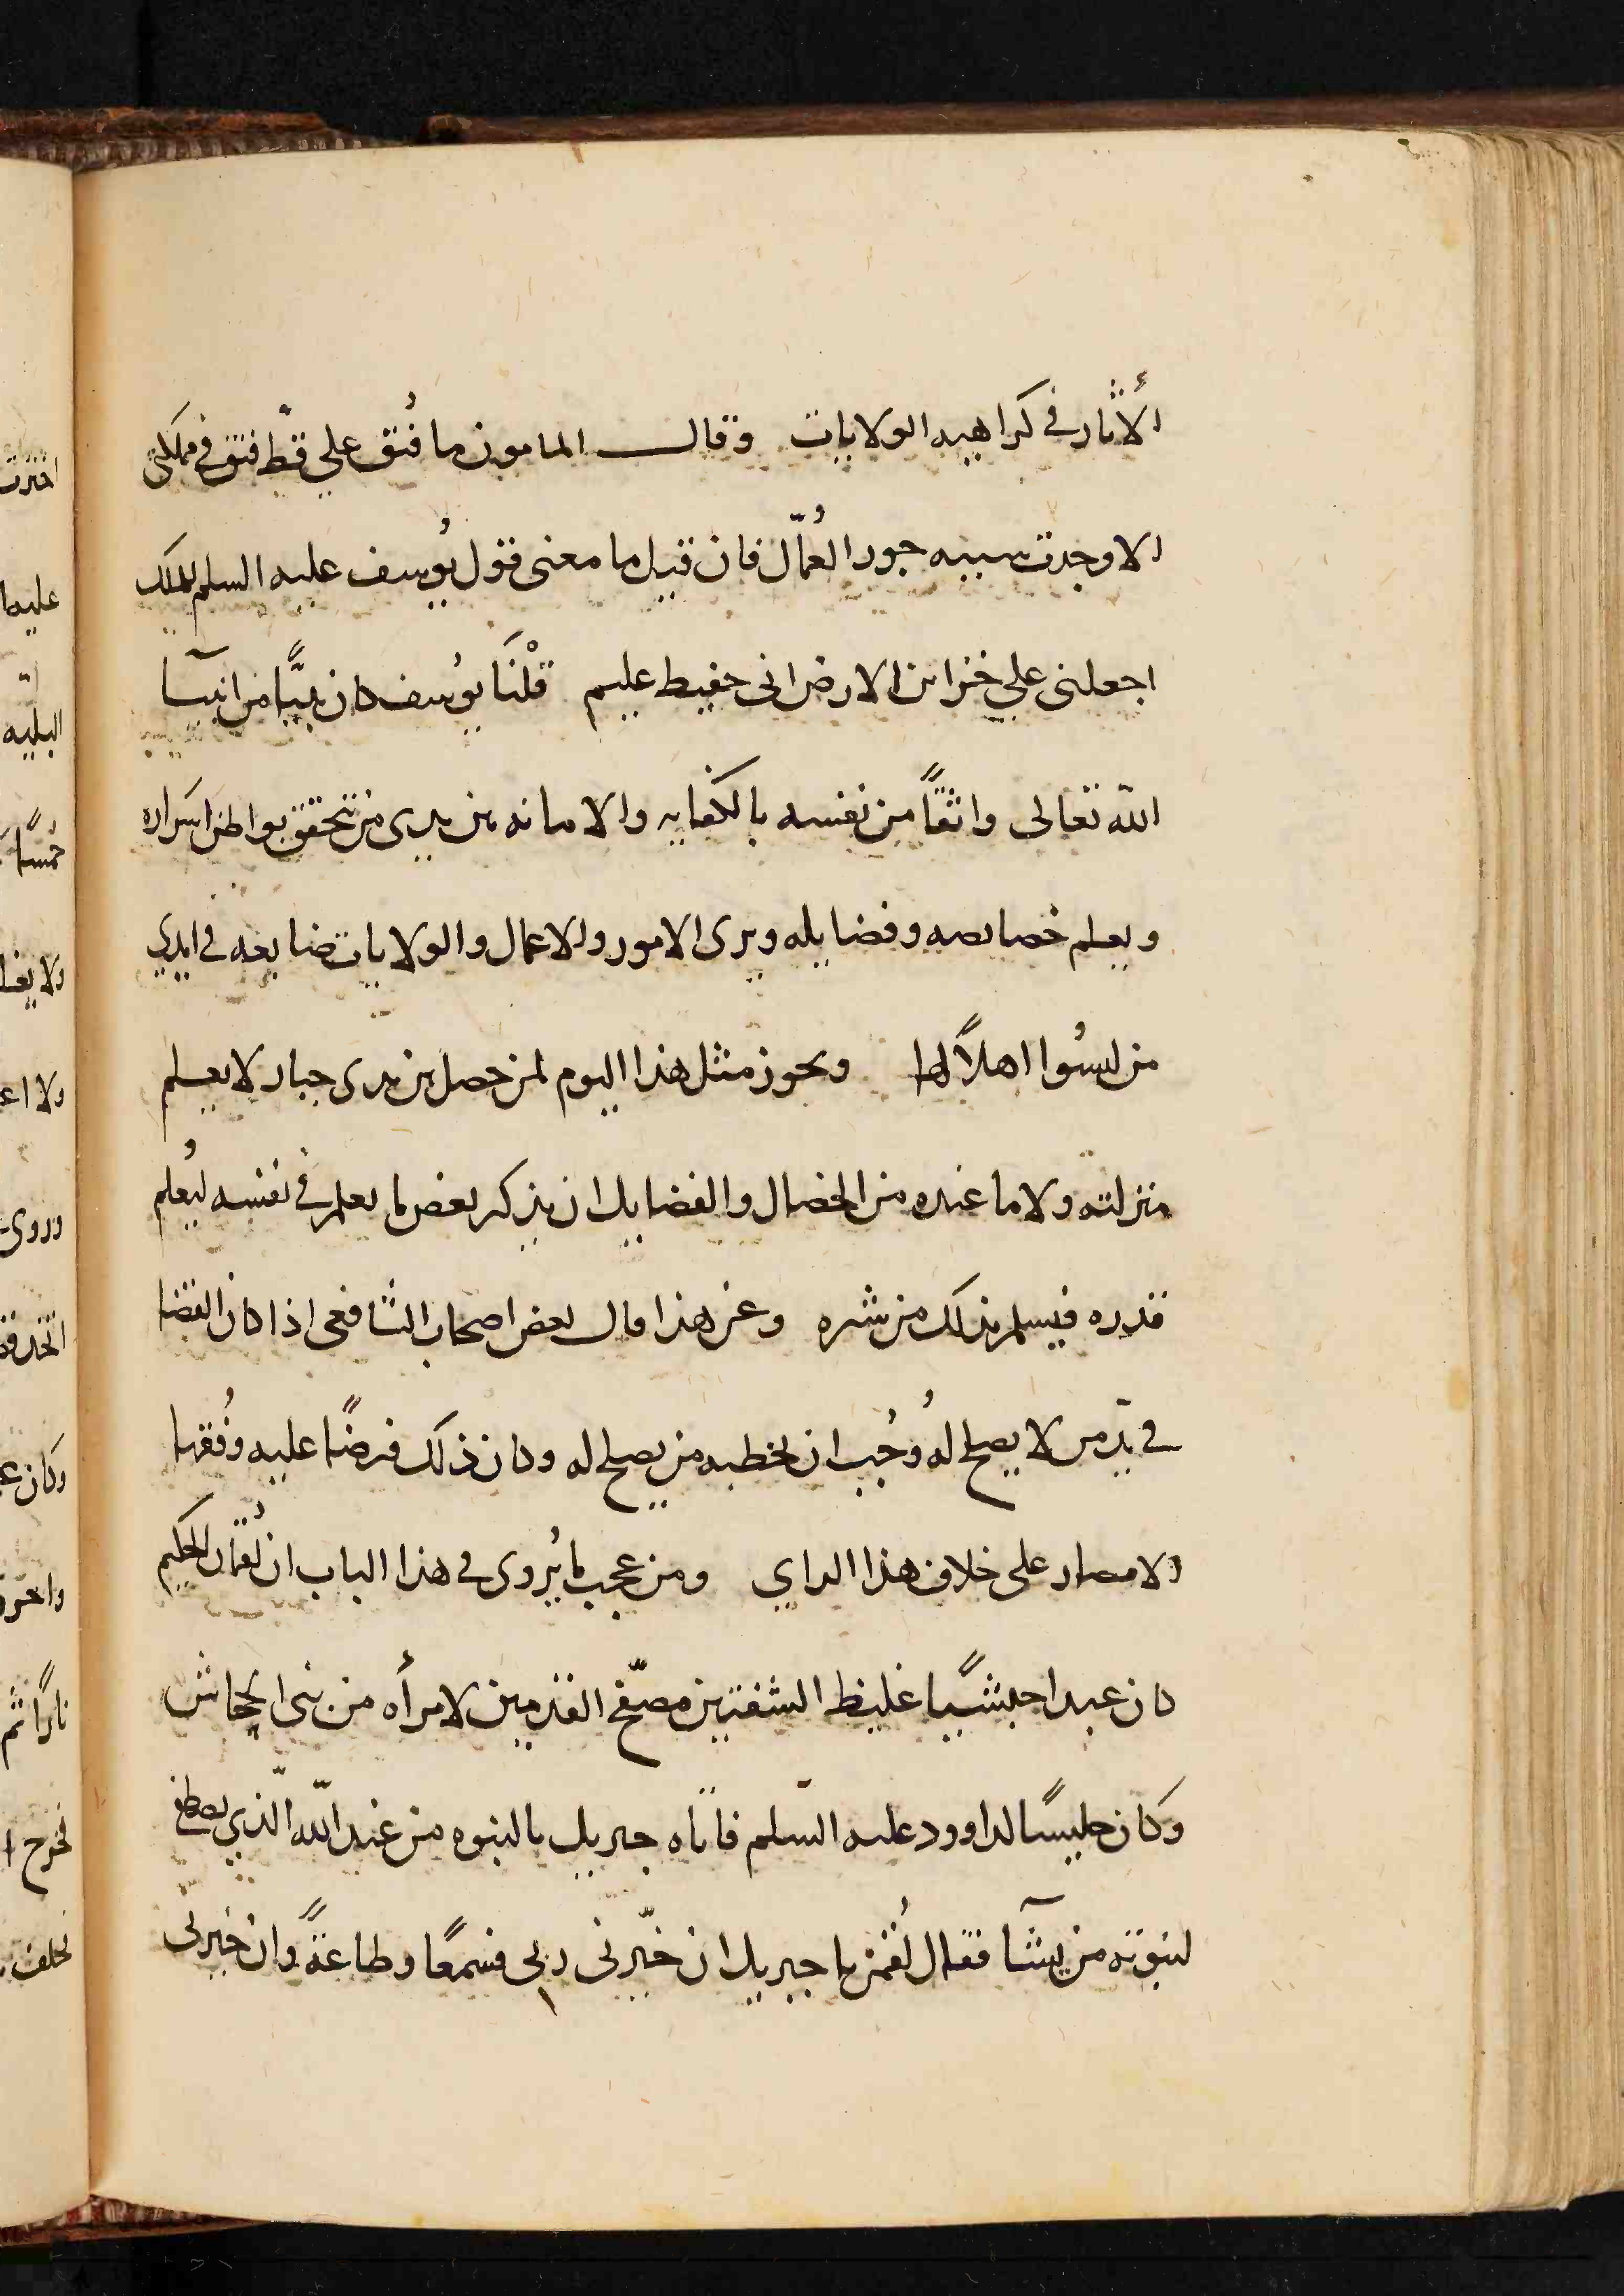 الأثار في كراهيه الولايات وقال المامون ما فُتق علي قطّ فتق في مملكتي
الا وجدت سببه جور العُمّال فان قيل ما معنى قول يُوسف عليه السلم للملك
اجعلني علي خزاين الارض اني حفيظ عليم قلْنَا يوُسف كان نبيًّا من انبيآ
الله تعالى واثقًا من نفسه بالكفايه والامانه بين يدي من تتحقق بواطن اسراره
ويعلم خصايصه وفضايله ويرى الامور والاعمال والولايات ضايعه في ايدي
من ليسُوا اهلاً لها ويجوز مثل هذا اليوم لمن حصل بين يدي جبار لا يعلم
منزلته ولا ما عنده من الخصال والفضايل ان يذكر بعض ما يعلم في نفسه ليُعلم
قدره فيسلم بذلك من شره وعن هذا قال بعض اصحاب الشافعي اذا كان القضا
في يد من لا يصلح لهُ وجُب ان يخطبه من يصلح له وكان ذلك فرضًا عليه وفُقها
الامصار على خلاف هذا الراي ومن عجب ما يُروى في هذا الباب ان لُقمان الحكيم
كان عبدا حبشيًّا غليظ الشفتين مصفّح القدمين لامرأه من بني الجحاش
وكان جليسًا لداوود عليه السّلم فاتاه جبريل بالنبوه من عند الله الّذي يصطفي
لنبوته من يشآ فقال لُقمن يا جبريل ان خيّرني ربي فسمعًا وطاعةً وان خيرني
اخترت
عليها
البليه
خمسًا
ولا
وروى
وكان
نارًا ثم